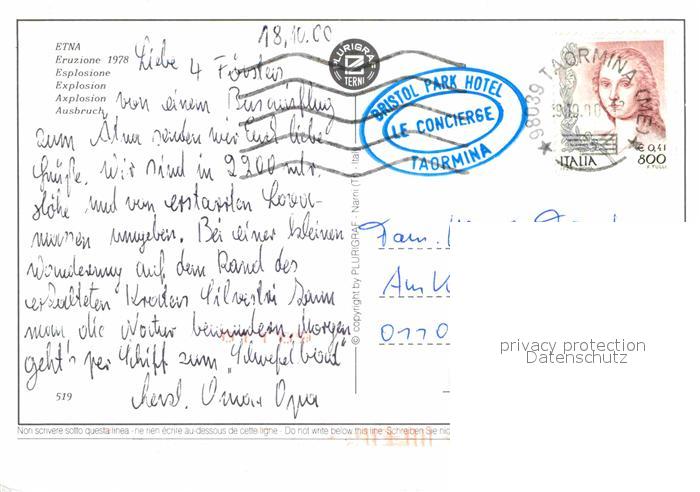 18.10.00
ETNA
Eruzione 1978
Esplosione
Explosion
Axplosion
Ausbruch
Liebe 4 Försters
von einem Busausflug
zum Ätna senden wir Euch liebe
Grüße. Wir sind in 2200 mtr.
Höhe und von erstarrten Lava-
massen umgeben. Bei einer kleinen
Wanderung auf dem Rand des
erkalteten Kraters Silvestri kann
man die Natur bewundern. Morgen
geht's per Schiff zum "Schwefelbad"
Herzl. Oma + Opa
519
PLURIGRAF
TERNI
BRISTOL PARK HOTEL
LE CONCIERGE
TAORMINA
98039 TAORMINA (ME)
ITALIA
€ 0,41
800
© copyright by PLURIGRAF - Narni (TR) - Ital
Fam.
Am K
0110
privacy protection
Datenschutz
Non scrivere sotto questa linea - ne rien écrire au-dessous de cette ligne - Do not write below this line - Schreiben Sie nic